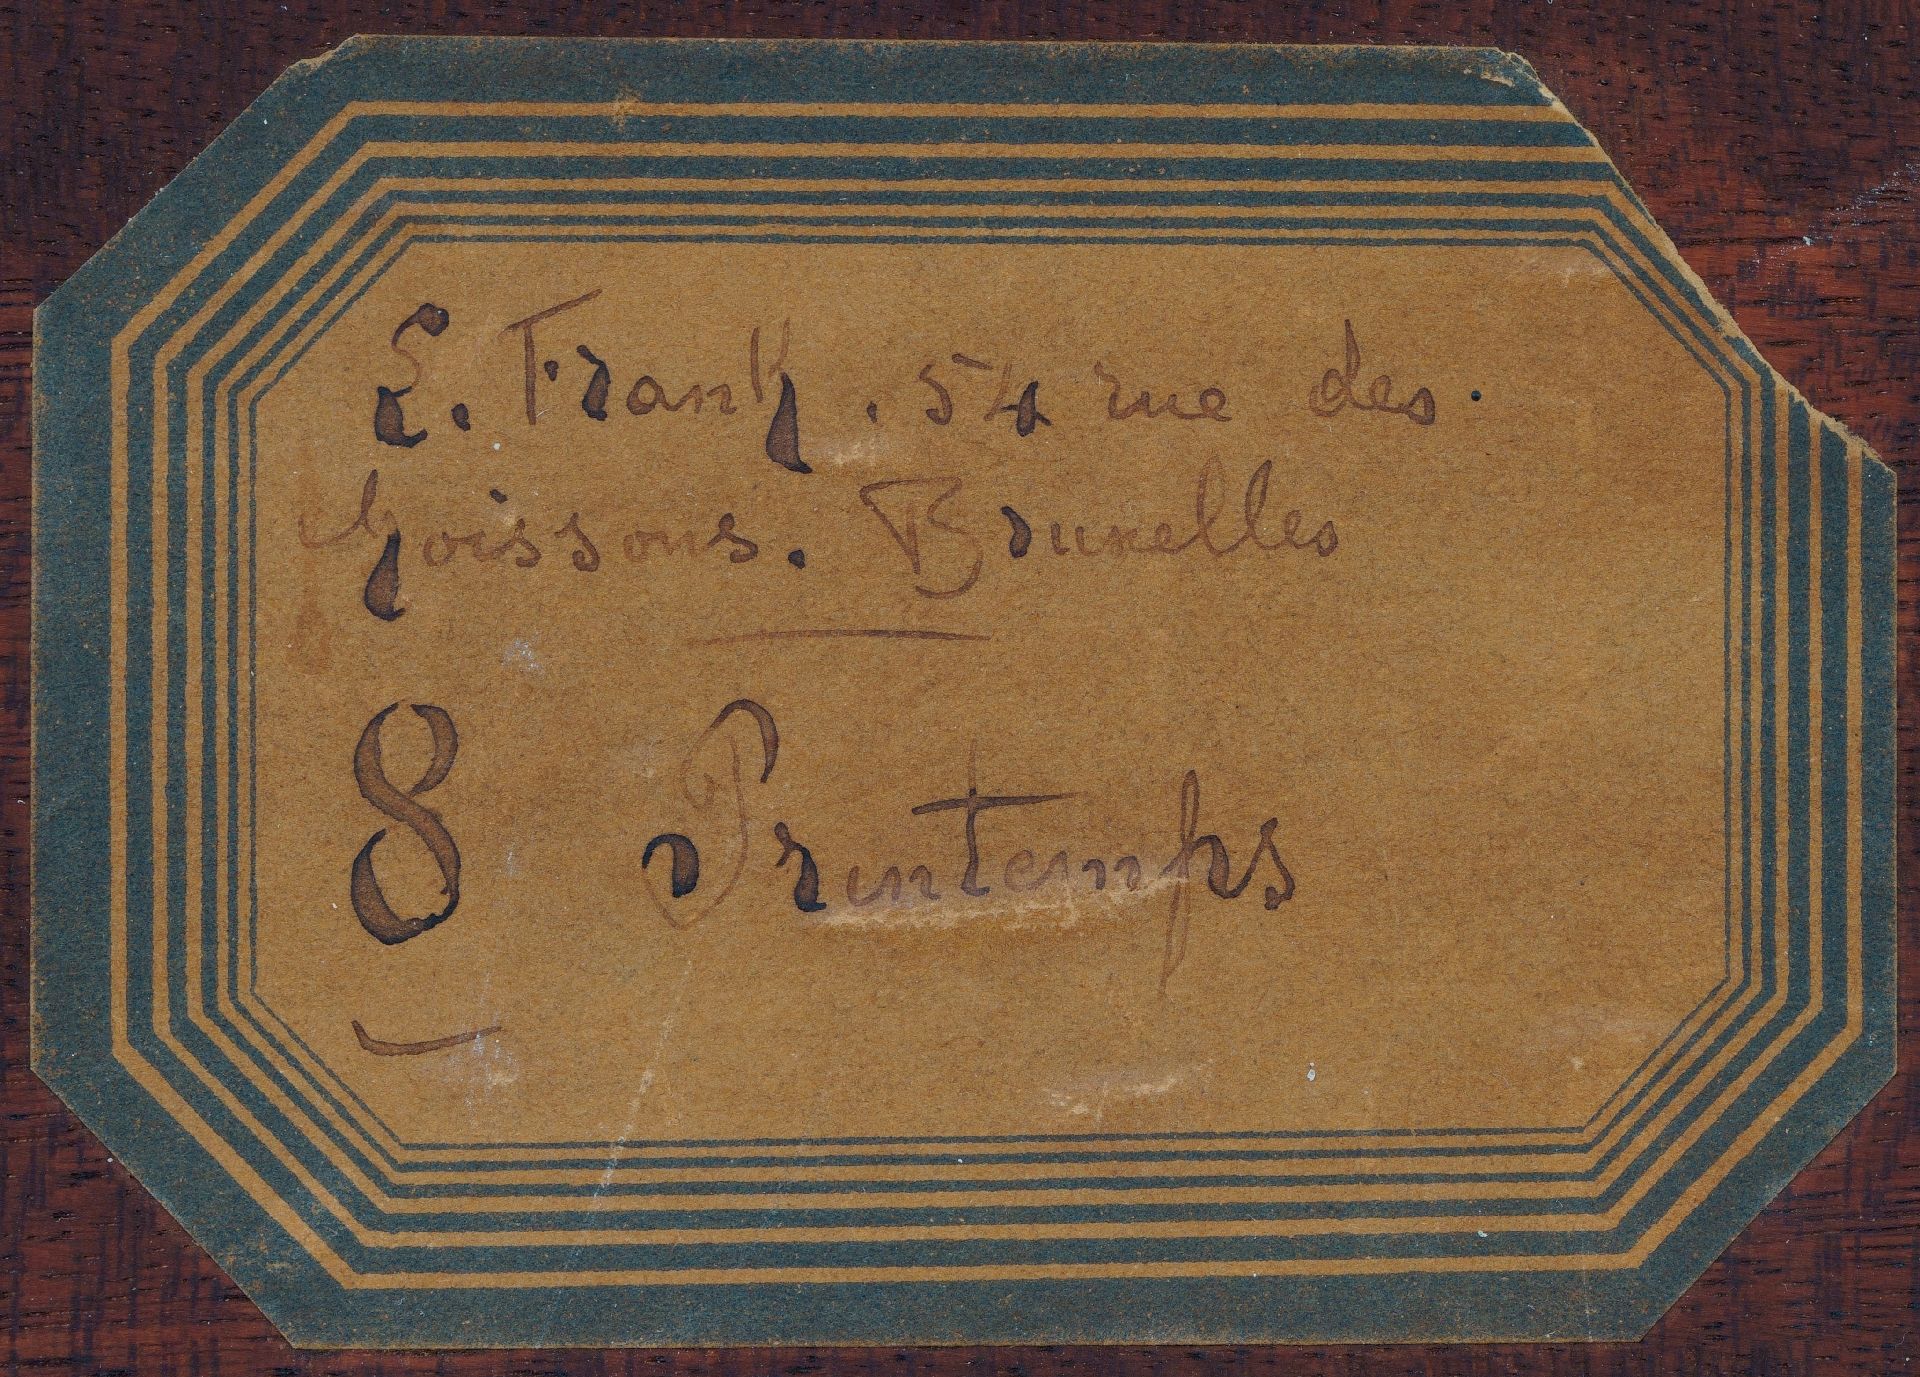 E. Frank. 54 rue des
poissons. Bruxelles
8 Printemps